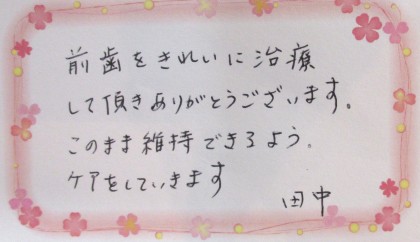 前歯をきれいに治療
して頂きありがとうございます。
このまま維持できるよう、
ケアをしていきます
田中